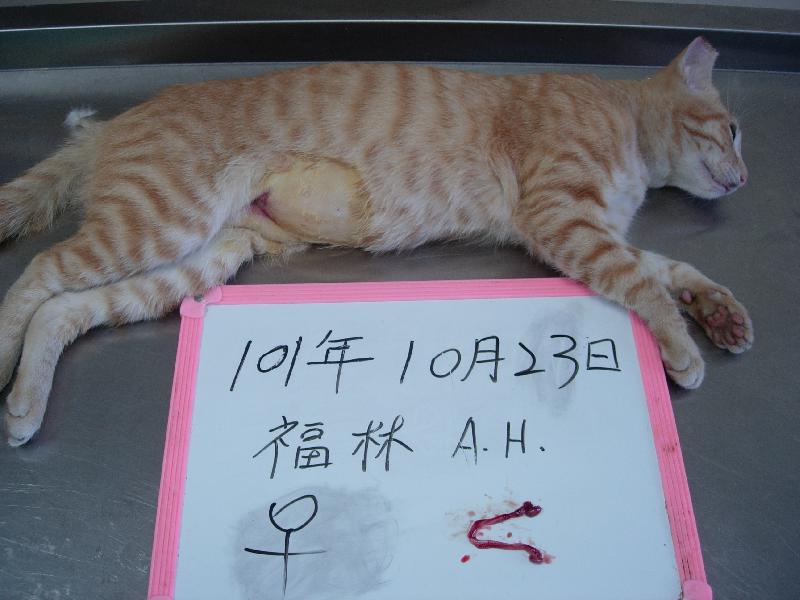 101年10月23日
福林 A.H.
♀